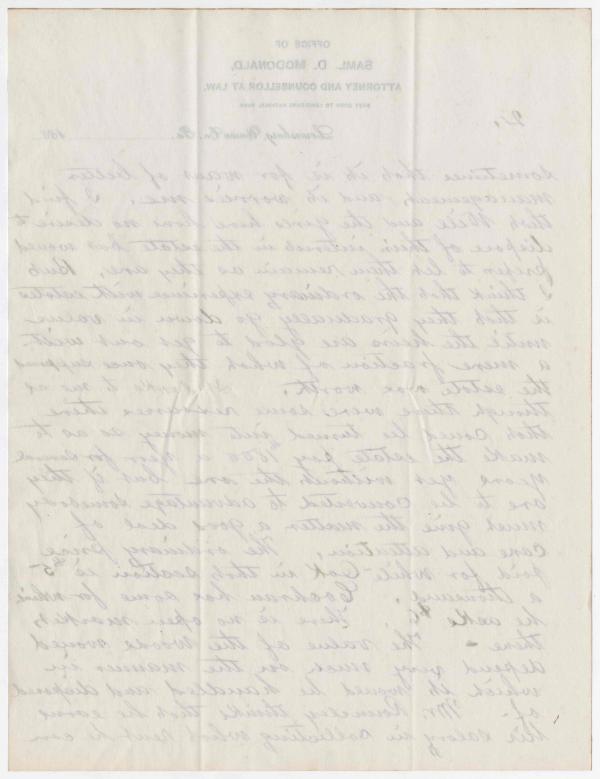 OFFICE OF
SAML. D. McDONALD,
ATTORNEY AND COUNSELLOR AT LAW,
188
2.
sometimes that it is for want of better
management, and it worries me. I find
that Will and the girls here have no desire to
dispose of their interest in the estate but would
prefer to let them remain as they are. But
I think that the ordinary experience with estates
is that they gradually go down in value
until the heirs are glad to get out with
a mere fraction of what they once supposed
the estate was worth. It looks to me as
though there were some resources there
that could be turned into money so as to
make the estate pay 1500 a year for several
years yet without the one but if they
are to be converted to advantage somebody
must give the matter a good deal of
care and attention. The ordinary price
paid for white oak in this section is $5
a thousand. Cochran has some for which
he asks There is no open market
there - The value of the woods would
depend very much on the manner in
which it would be handled and disposed
of - Mr. thinks that he earns
his salary in collecting what rent he can